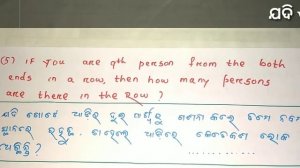 ଯଦି
(5) if you are 9th person from the both
ends in a row, then how many persons
are there in the Row ?
ଯଦି ଗୋଟେ ଧାଡ଼ିର ଦୁଇ
ସ୍ଥାନରେ ରହୁଛ. ତାହେଲେ ଧାଡ଼ିରେ କେତେଜଣ ଲୋକ
ଅଛନ୍ତି ?